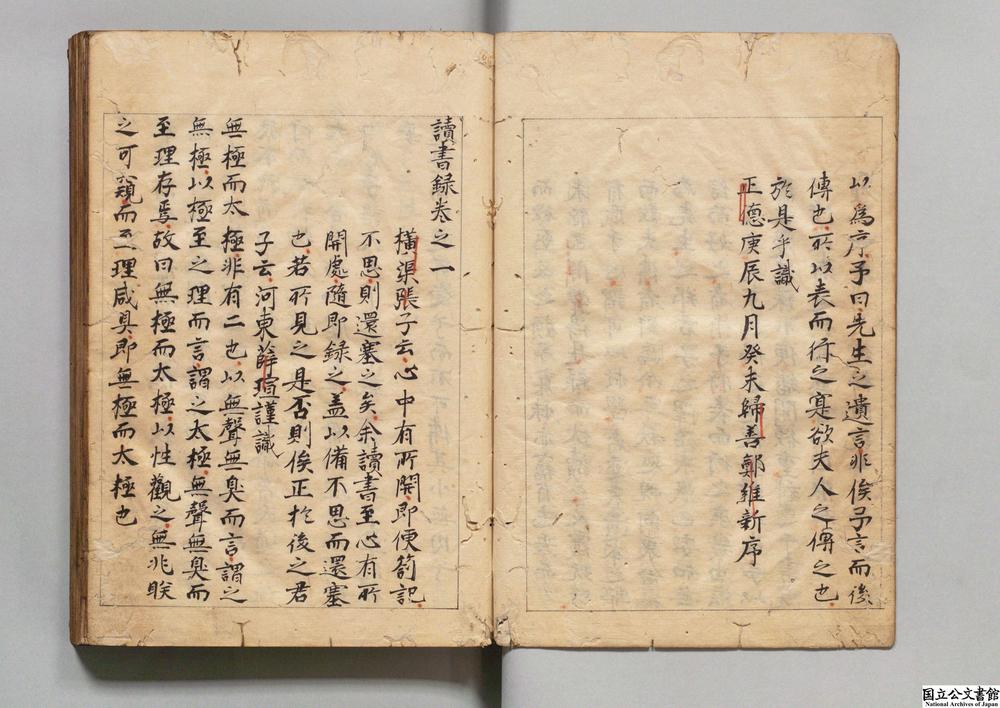 以為序予曰先生之遺言非俟予言而後
傳也所以表而行之寔欲夫人之傳之也
於是乎識
正德庚辰九月癸未歸善鄭維新序
讀書録卷之一
橫渠張子云心中有所開即便劄記
不思則還塞之矣余讀書至心有所
開處隨即録之蓋以備不思而還塞
也若所見之是否則俟正於後之君
子云河東薛瑄謹識
無極而太極非有二也以無聲無臭而言謂之
無極以極至之理而言謂之太極無聲無臭而
至理存焉故曰無極而太極以性觀之無兆眹
之可窺而至理咸具即無極而太極也
国立公文書館
National Archives of Japan